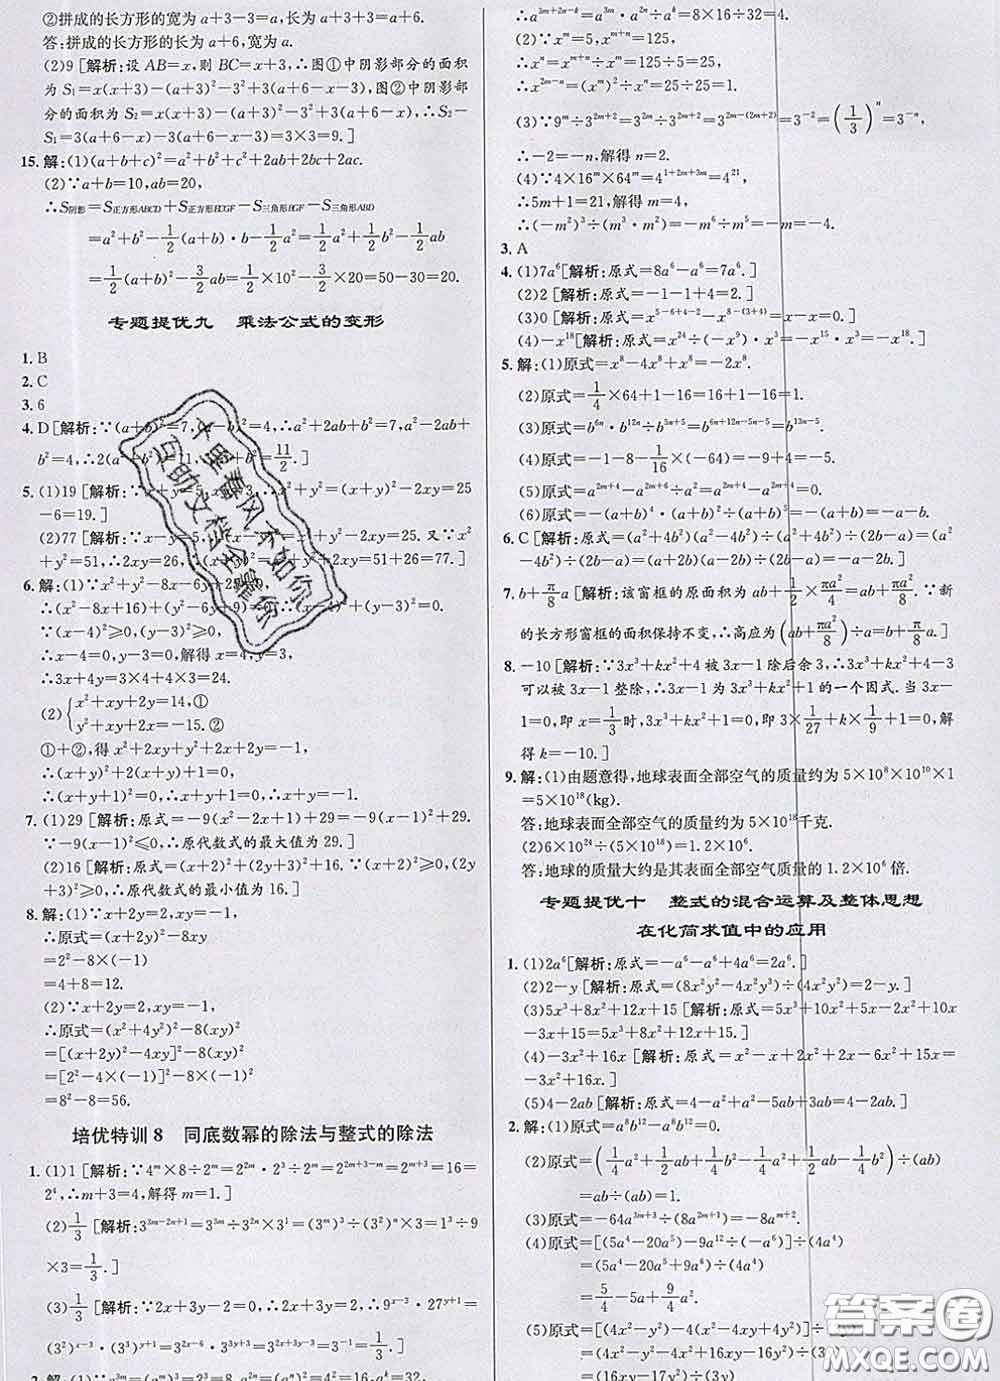 ②拼成的长方形的宽为a+3-3=a,长为a+3+3=a+6.
答:拼成的长方形的长为a+6,宽为a.
(2)9[解析:设AB=x,则BC=x+3,∴图①中阴影部分的面积
为S₁=x(x+3)-(a+3)²-3²+3(a+6-x-3),图②中阴影
部分的面积为S₂=x(x+3)-(a+3)²-3²+3(a+6-x),∴S₂-
S₁=3(a+6-x)-3(a+6-x-3)=3×3=9.]
15.解:(1)(a+b+c)²=a²+b²+c²+2ab+2bc+2ac.
(2)∵a+b=10,ab=20,
∴S阴影=S正方形ABCD+S正方形ECGF-S三角形BGF-S三角形ABD
=a²+b²-1/2(a+b)·b-1/2a²=1/2a²+1/2b²-1/2ab
=1/2(a+b)²-3/2ab=1/2×10²-3/2×20=50-30=20.
专题提优九 乘法公式的变形
1.B
2.C
3.6
4.D[解析:∵(a+b)²=7,(a-b)²=4,∴a²+2ab+b²=7,a²-2ab+
b²=4,∴2(a²+b²)=11,∴a²+b²=11/2.]
-6=19.]
6.解:(1)∵x²+y²-8x-6y+25=0,
∴(x²-8x+16)+(y²-6y+9)=0,∴(x-4)²+(y-3)²=0.
∵(x-4)²≥0,(y-3)²≥0,
∴x-4=0,y-3=0,解得x=4,y=3,
∴3x+4y=3×4+4×3=24.
(2){x²+xy+2y=14,①
y²+xy+2x=-15.②
①+②,得x²+2xy+y²+2x+2y=-1,
∴(x+y)²+2(x+y)+1=0,
∴(x+y+1)²=0,∴x+y+1=0,∴x+y=-1.
7.(1)29[解析:原式=-9(x²-2x+1)+29=-9(x-1)²+29.
∵-9(x-1)²≤0,∴原代数式的最大值为29.]
(2)16[解析:原式=(x+2)²+(2y+3)²+16.∵(x+2)²≥0,(2y
+3)²≥0,∴原代数式的最小值为16.]
8.解:(1)∵x+2y=2,xy=-1,
∴原式=(x+2y)²-8xy
=2²-8×(-1)
=4+8=12.
(2)∵x+2y=2,xy=-1,
∴原式=(x²+4y²)²-8(xy)²
=[(x+2y)²-4xy]²-8(xy)²
=[2²-4×(-1)]²-8×(-1)²
=8²-8=56.
培优特训8 同底数幂的除法与整式的除法
1.(1)1[解析:∵4ᵐ×8÷2ᵐ=2²ᵐ·2³÷2ᵐ=2²ᵐ⁺³⁻ᵐ=2ᵐ⁺³=16=
2⁴,∴m+3=4,解得m=1.]
(2)1/3[解析:3³ᵐ⁻²ⁿ⁺¹=3³ᵐ÷3²ⁿ×3¹=(3ᵐ)³÷(3ⁿ)²×3=1³÷9
×3=1/3.]
(3)1/3[解析:∵2x+3y-2=0,∴2x+3y=2,∴9ˣ⁻³·27ʸ⁺¹=
(3²)ˣ⁻³·(3³)ʸ⁺¹=3²ˣ⁻⁶·3³ʸ⁺³=3²ˣ⁺³ʸ⁻³=3⁻¹=1/3.]
∴a³ᵐ⁺²ⁿ⁻ᵏ=a³ᵐ·a²ⁿ÷aᵏ=8×16÷32=4.
(2)∵xᵐ=5,xᵐ⁺ⁿ=125,
∴xⁿ=xᵐ⁺ⁿ÷xᵐ=125÷5=25,
∴x²ᵐ⁻ⁿ=(xᵐ)²÷xⁿ=25÷25=1.
(3)∵9ᵐ÷3²ᵐ⁺²=3²ᵐ÷3²ᵐ⁺²=3²ᵐ⁻⁽²ᵐ⁺²⁾=3⁻²=(1/3)ⁿ=3⁻ⁿ,
∴-2=-n,解得n=2.
(4)∵4×16ᵐ×64ᵐ=4¹⁺²ᵐ⁺³ᵐ=4²¹,
∴5m+1=21,解得m=4,
∴(-m²)³÷(m³·m²)=-m⁶÷m⁵=-m=-4.
3.A
4.(1)7a⁶[解析:原式=8a⁶-a⁶=7a⁶.]
(2)2[解析:原式=-1-1+4=2.]
(3)0[解析:原式=x⁵⁻⁶⁺⁴⁻²-x⁸⁻⁽³⁺⁴⁾=x-x=0.]
(4)-x¹⁸[解析:原式=x²⁴÷(-x⁹)·x³=-x¹⁵·x³=-x¹⁸.]
5.解:(1)原式=x⁸-4x⁸+x⁸=-2x⁸.
(2)原式=1/4×64+1-16=16+1-16=1.
(3)原式=b⁶ⁿ·b¹²ⁿ÷b⁵ⁿ⁺⁵=b⁶ⁿ⁺¹²ⁿ⁻⁵ⁿ⁻⁵=b¹³ⁿ⁻⁵.
(4)原式=-1-8-1/16×(-64)=-9+4=-5.
(6)原式=-(a+b)³·(a+b)²÷(a+b)⁴=-(a+b)=-a-b.
6.C[解析:原式=(a²+4b²)(a²-4b²)÷(a²+4b²)÷(2b-a)=(a²
-4b²)÷(2b-a)=(a+2b)(a-2b)÷(2b-a)=-a-2b.]
7.b+π/8a[解析:该窗框的原面积为ab+1/2×πa²/4=ab+πa²/8.∵新
的长方形窗框的面积保持不变,∴高应为(ab+πa²/8)÷a=b+πa/8.]
8.-10[解析:∵3x³+kx²+4被3x-1除后余3,∴3x³+kx²+4-3
可以被3x-1整除,∴3x-1为3x³+kx²+1的一个因式.当3x-
1=0,即x=1/3时,3x³+kx²+1=0,即3×1/27+k×1/9+1=0,解
得k=-10.]
9.解:(1)由题意得,地球表面全部空气的质量约为5×10⁸×10¹⁰×1
=5×10¹⁸(kg).
答:地球表面全部空气的质量约为5×10¹⁸千克.
(2)6×10²⁴÷(5×10¹⁸)=1.2×10⁶.
答:地球的质量大约是其表面全部空气质量的1.2×10⁶倍.
专题提优十 整式的混合运算及整体思想
在化简求值中的应用
1.(1)2a⁶[解析:原式=-a⁶-a⁶+4a⁶=2a⁶.]
(2)2-y[解析:原式=(8x²y²-4x²y³)÷(4x²y²)=2-y.]
(3)5x³+8x²+12x+15[解析:原式=5x³+10x²+5x-2x²+10x
-3x+15=5x³+8x²+12x+15.]
(4)-3x²+16x[解析:原式=-x²-x³+4x²+2x-6x²+15x
-x+x³=-3x²+16x.]
(5)4-2ab[解析:原式=4-a²+a²-5ab+3ab=4-2ab.]
2.解:(1)原式=a⁸b¹²-a⁸b¹²=0.
(2)原式=(1/4a²+1/2ab+1/4b²-1/4a²+1/2ab-1/4b²)÷(ab)
=ab÷(ab)=1.
(3)原式=-64a³ᵐ⁺³÷(8a²ᵐ⁺¹)=-8aᵐ⁺².
(4)原式=[(5a⁴-20a⁵)-9a¹²÷(-a⁶)]÷(4a⁴)
=(5a⁴-20a⁵+9a⁶)÷(4a⁴)
=5/4-5a+9/4a².
(5)原式=[(4x²-y²)-(4x²-4xy+4y²)]÷(4x)
答案圈
MXQE.COM
千里春风不如你
互助文档全靠你